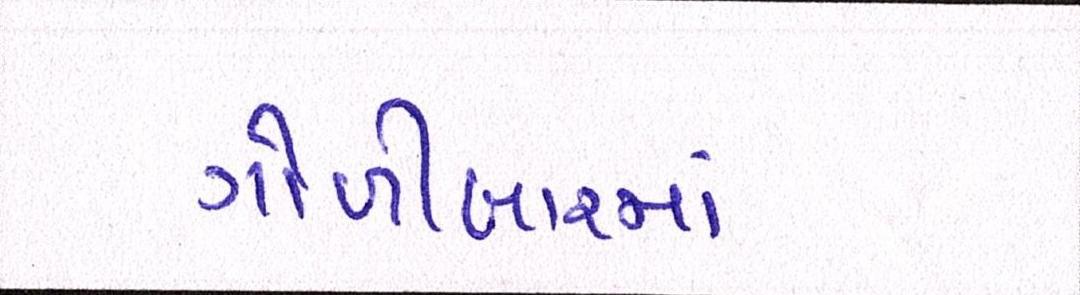 ગોળીબારમાં